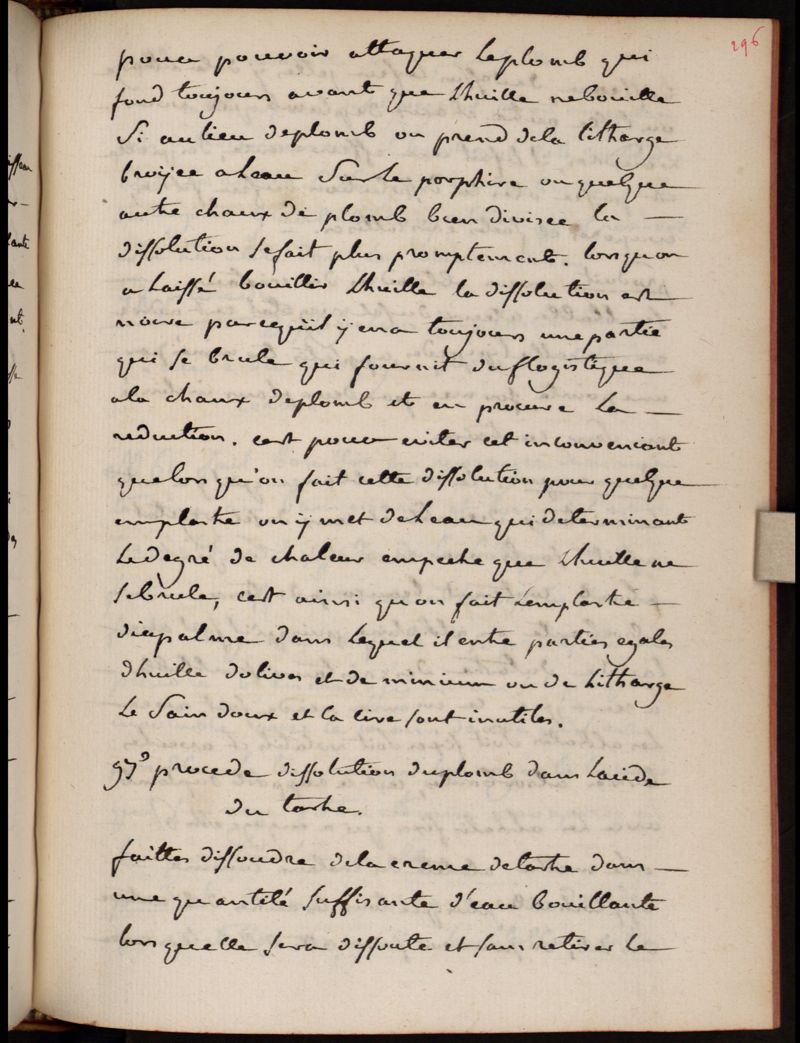 296
pour pouvoir attaquer Leplomb qui
fond toujours avant que Lhuille nebouille
Si aulieu deplomb on prend dela litharge
broijée aLeau Sur Le porphire ou quelque
autre chaux de plomb bien divisee la —
dissolution Sefait plus promptement. lorsquon
a Laissé bouillir Lhuille la dissolution est
noire parcequil ij ena toujours une partie
qui Se brule qui fournit duflogistique
ala chaux deplomb et en procure La —
reduction. cest pour eviter cet inconvenient
quelors qu'on fait cette dissolution pour quelque
emplastre on ij met deLeau qui determinant
Ledegré de chaleur empeche que Lhuille ne
Sebrule, cest ainsi quon fait Lemplastre —
diapalme dans Lequel il entre parties egales
dhuille dolives et de minium ou de Litharge
Le Sain doux et la cire sont inutiles.
97° procede dissolution duplomb dans Lacide
du tartre.
faittes dissoudre dela creme detartre dans —
une quantité Suffisante d'eau bouillante
lors quelle Sera dissoute et sans retirer le